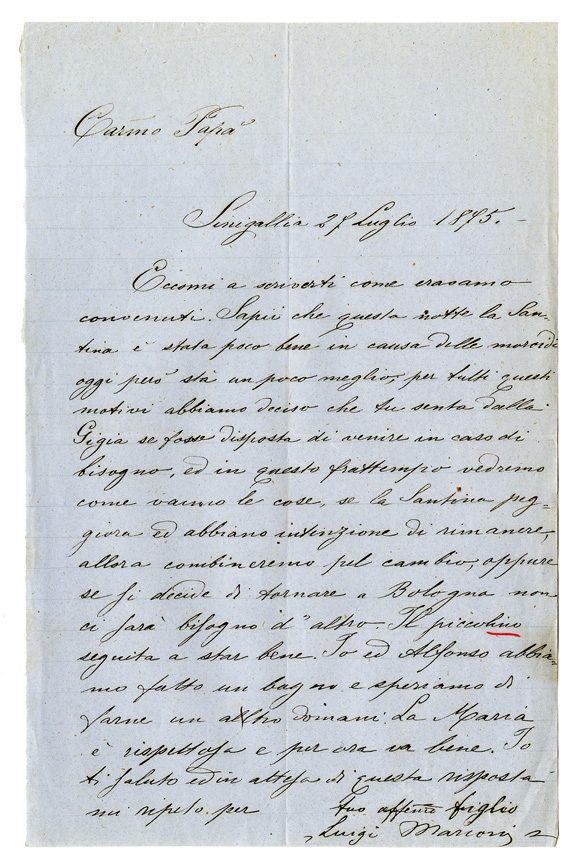 Carmo Papà
Sinigallia 27 Luglio 1875.-
Eccomi a scriverti come eravamo
convenuti. Sapii che questa notte la San-
tina è stata poco bene in causa delle moroidi
oggi però stà un poco meglio, per tutti questi
motivi abbiamo deciso che tu senta dalla
Gigia se fosse disposta di venire in caso di
bisogno, ed in questo frattempo vedremo
come vanno le cose, se la Santina peg-
giora ed abbiano intinzione di rimanere,
allora combineremo pel cambio, oppure
se si decide di tornare a Bologna non
ci sarà bisogno d'altro. Il piccolino
seguita a star bene. Io ed Alfonso abbia-
mo fatto un bagno e speriamo di
farne un altro domani. La Maria
è rispettosa e per ora va bene. Io
ti saluto ed in attesa di questa risposta
mi ripeto per tuo figlio
Luigi Marconi